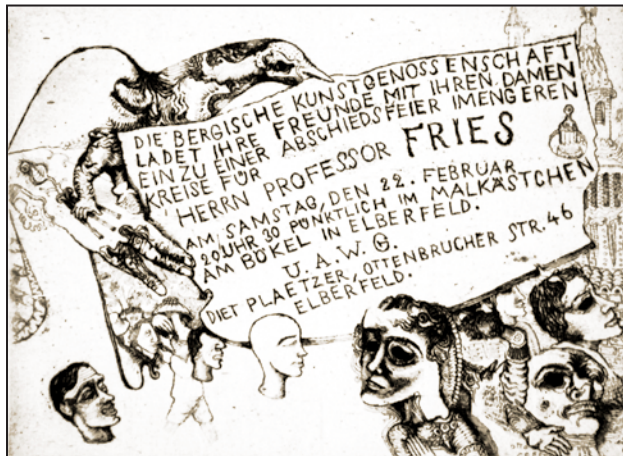 DIE BERGISCHE KUNSTGENOSSENSCHAFT
LADET IHRE FREUNDE MIT IHREN DAMEN
EIN ZU EINER ABSCHIEDSFEIER IM ENGEREN
KREISE FÜR
HERRN PROFESSOR FRIES
AM SAMSTAG, DEN 22. FEBRUAR
20 UHR 30 PÜNKTLICH IM MALKÄSTCHEN
AM BÖKEL IN ELBERFELD.
U.A.W.G.
DIET PLAETZER, OTTENBRUCHER STR. 46
ELBERFELD.